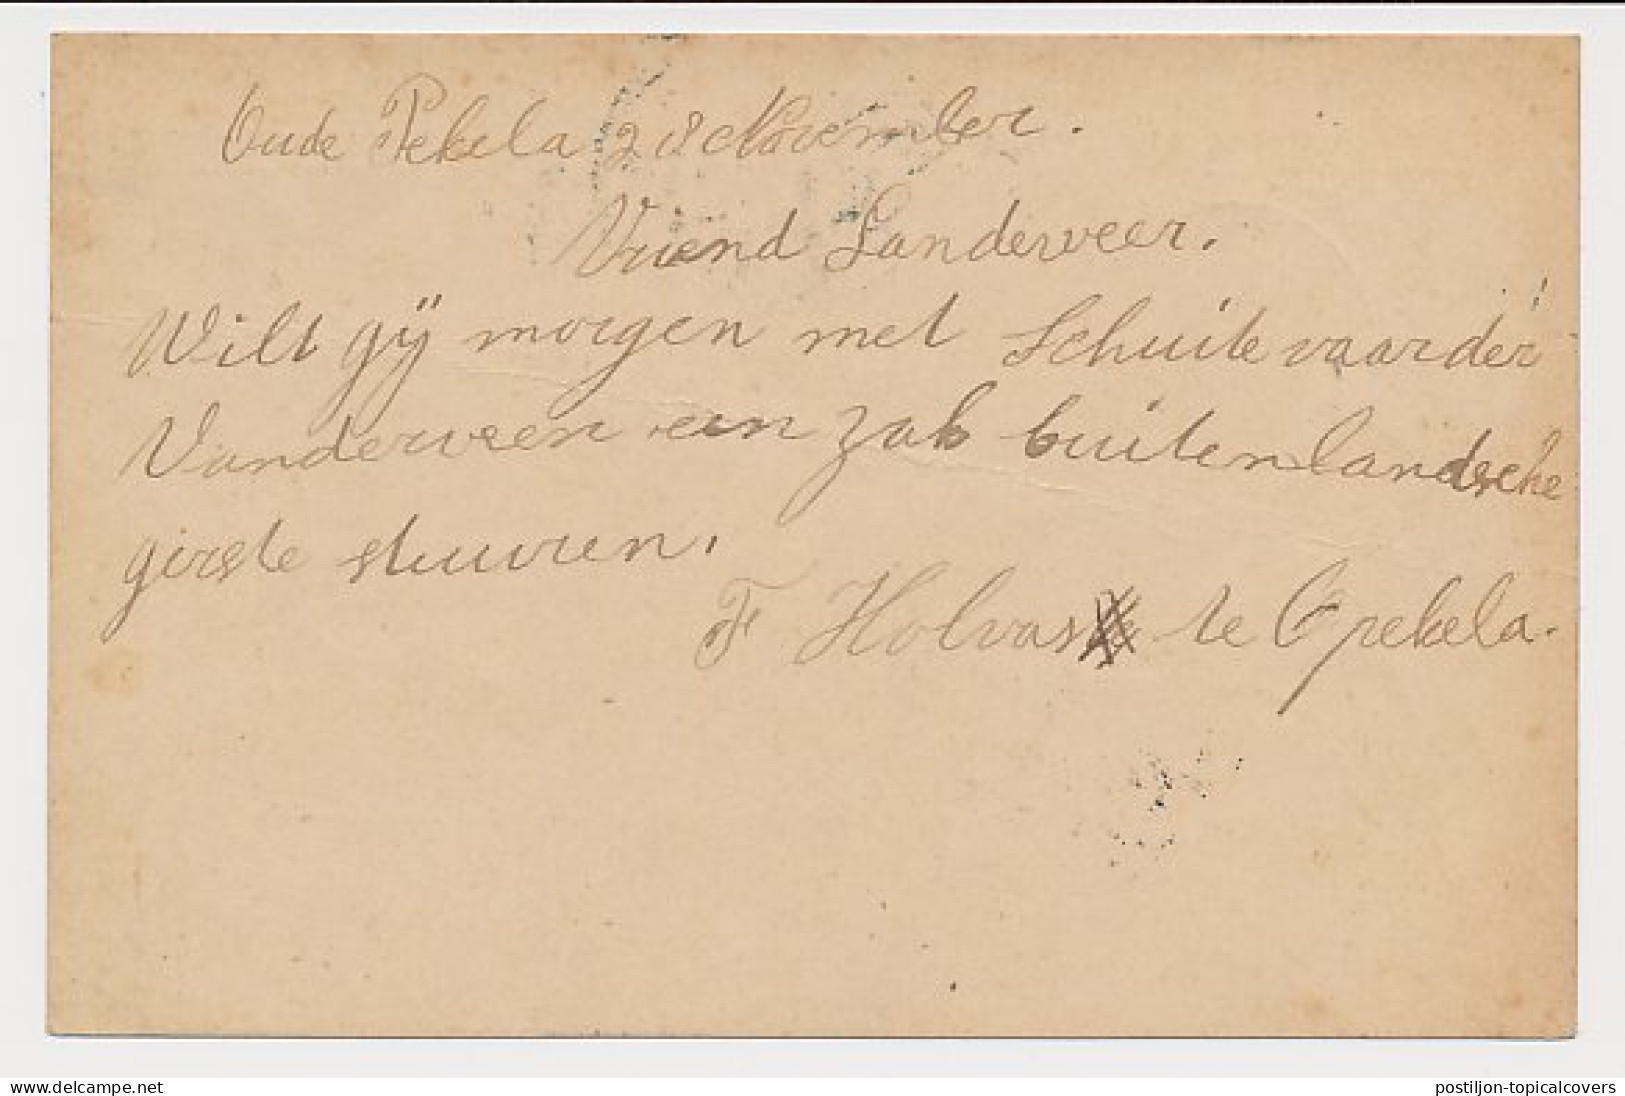 Oude Pekela 28 November.
Vriend Landerweer.
Wilt gij morgen met Schuitevaarder
Vanderveen een zak buitenlandsche
girste stuuren.
F Holvas te Opekela.
www.delcampe.net
postiljon-topicalcovers